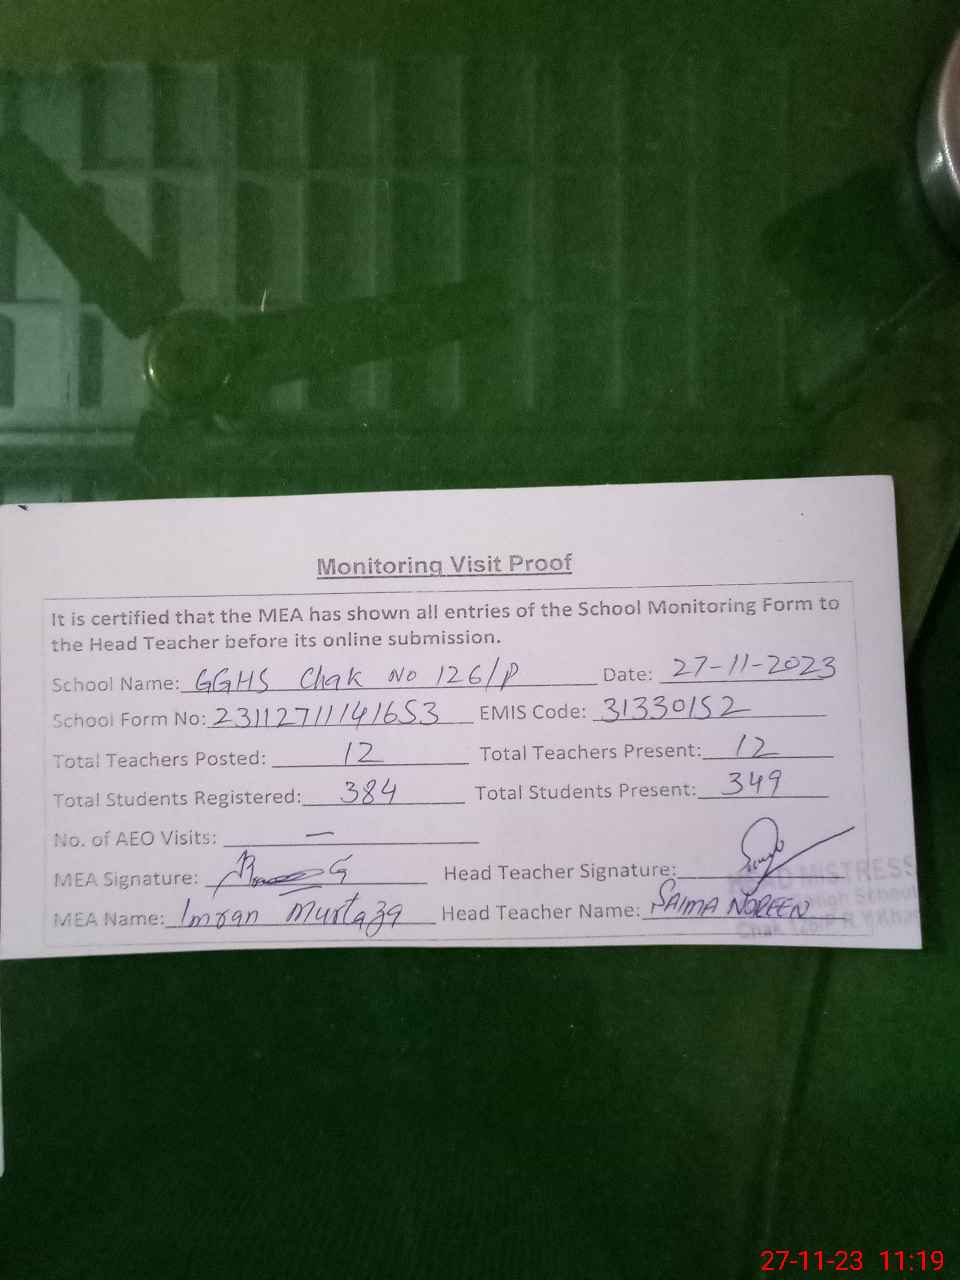 Monitoring Visit Proof
It is certified that the MEA has shown all entries of the School Monitoring Form to
the Head Teacher before its online submission.
School Name: GGHS Chak No 126/P Date: 27-11-2023
School Form No: 23112711141653 EMIS Code: 31330152
Total Teachers Posted: 12 Total Teachers Present: 12
Total Students Registered: 384 Total Students Present: 349
No. of AEO Visits: —
MEA Signature: Head Teacher Signature:
HEAD MISTRESS
MEA Name: Imran Murtaza Head Teacher Name: SAIMA NOREEN
High School
Chak 126/P R Y Khan
27-11-23 11:19